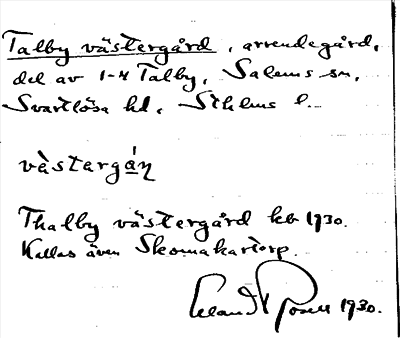 Talby västergård, arrendegård,
del av 1-4 Talby, Salems sn,
Svartlösa hd, Sthlms l.
västergán
Thalby västergård kb 1930.
Kallas även Skomakartorp.
1930.